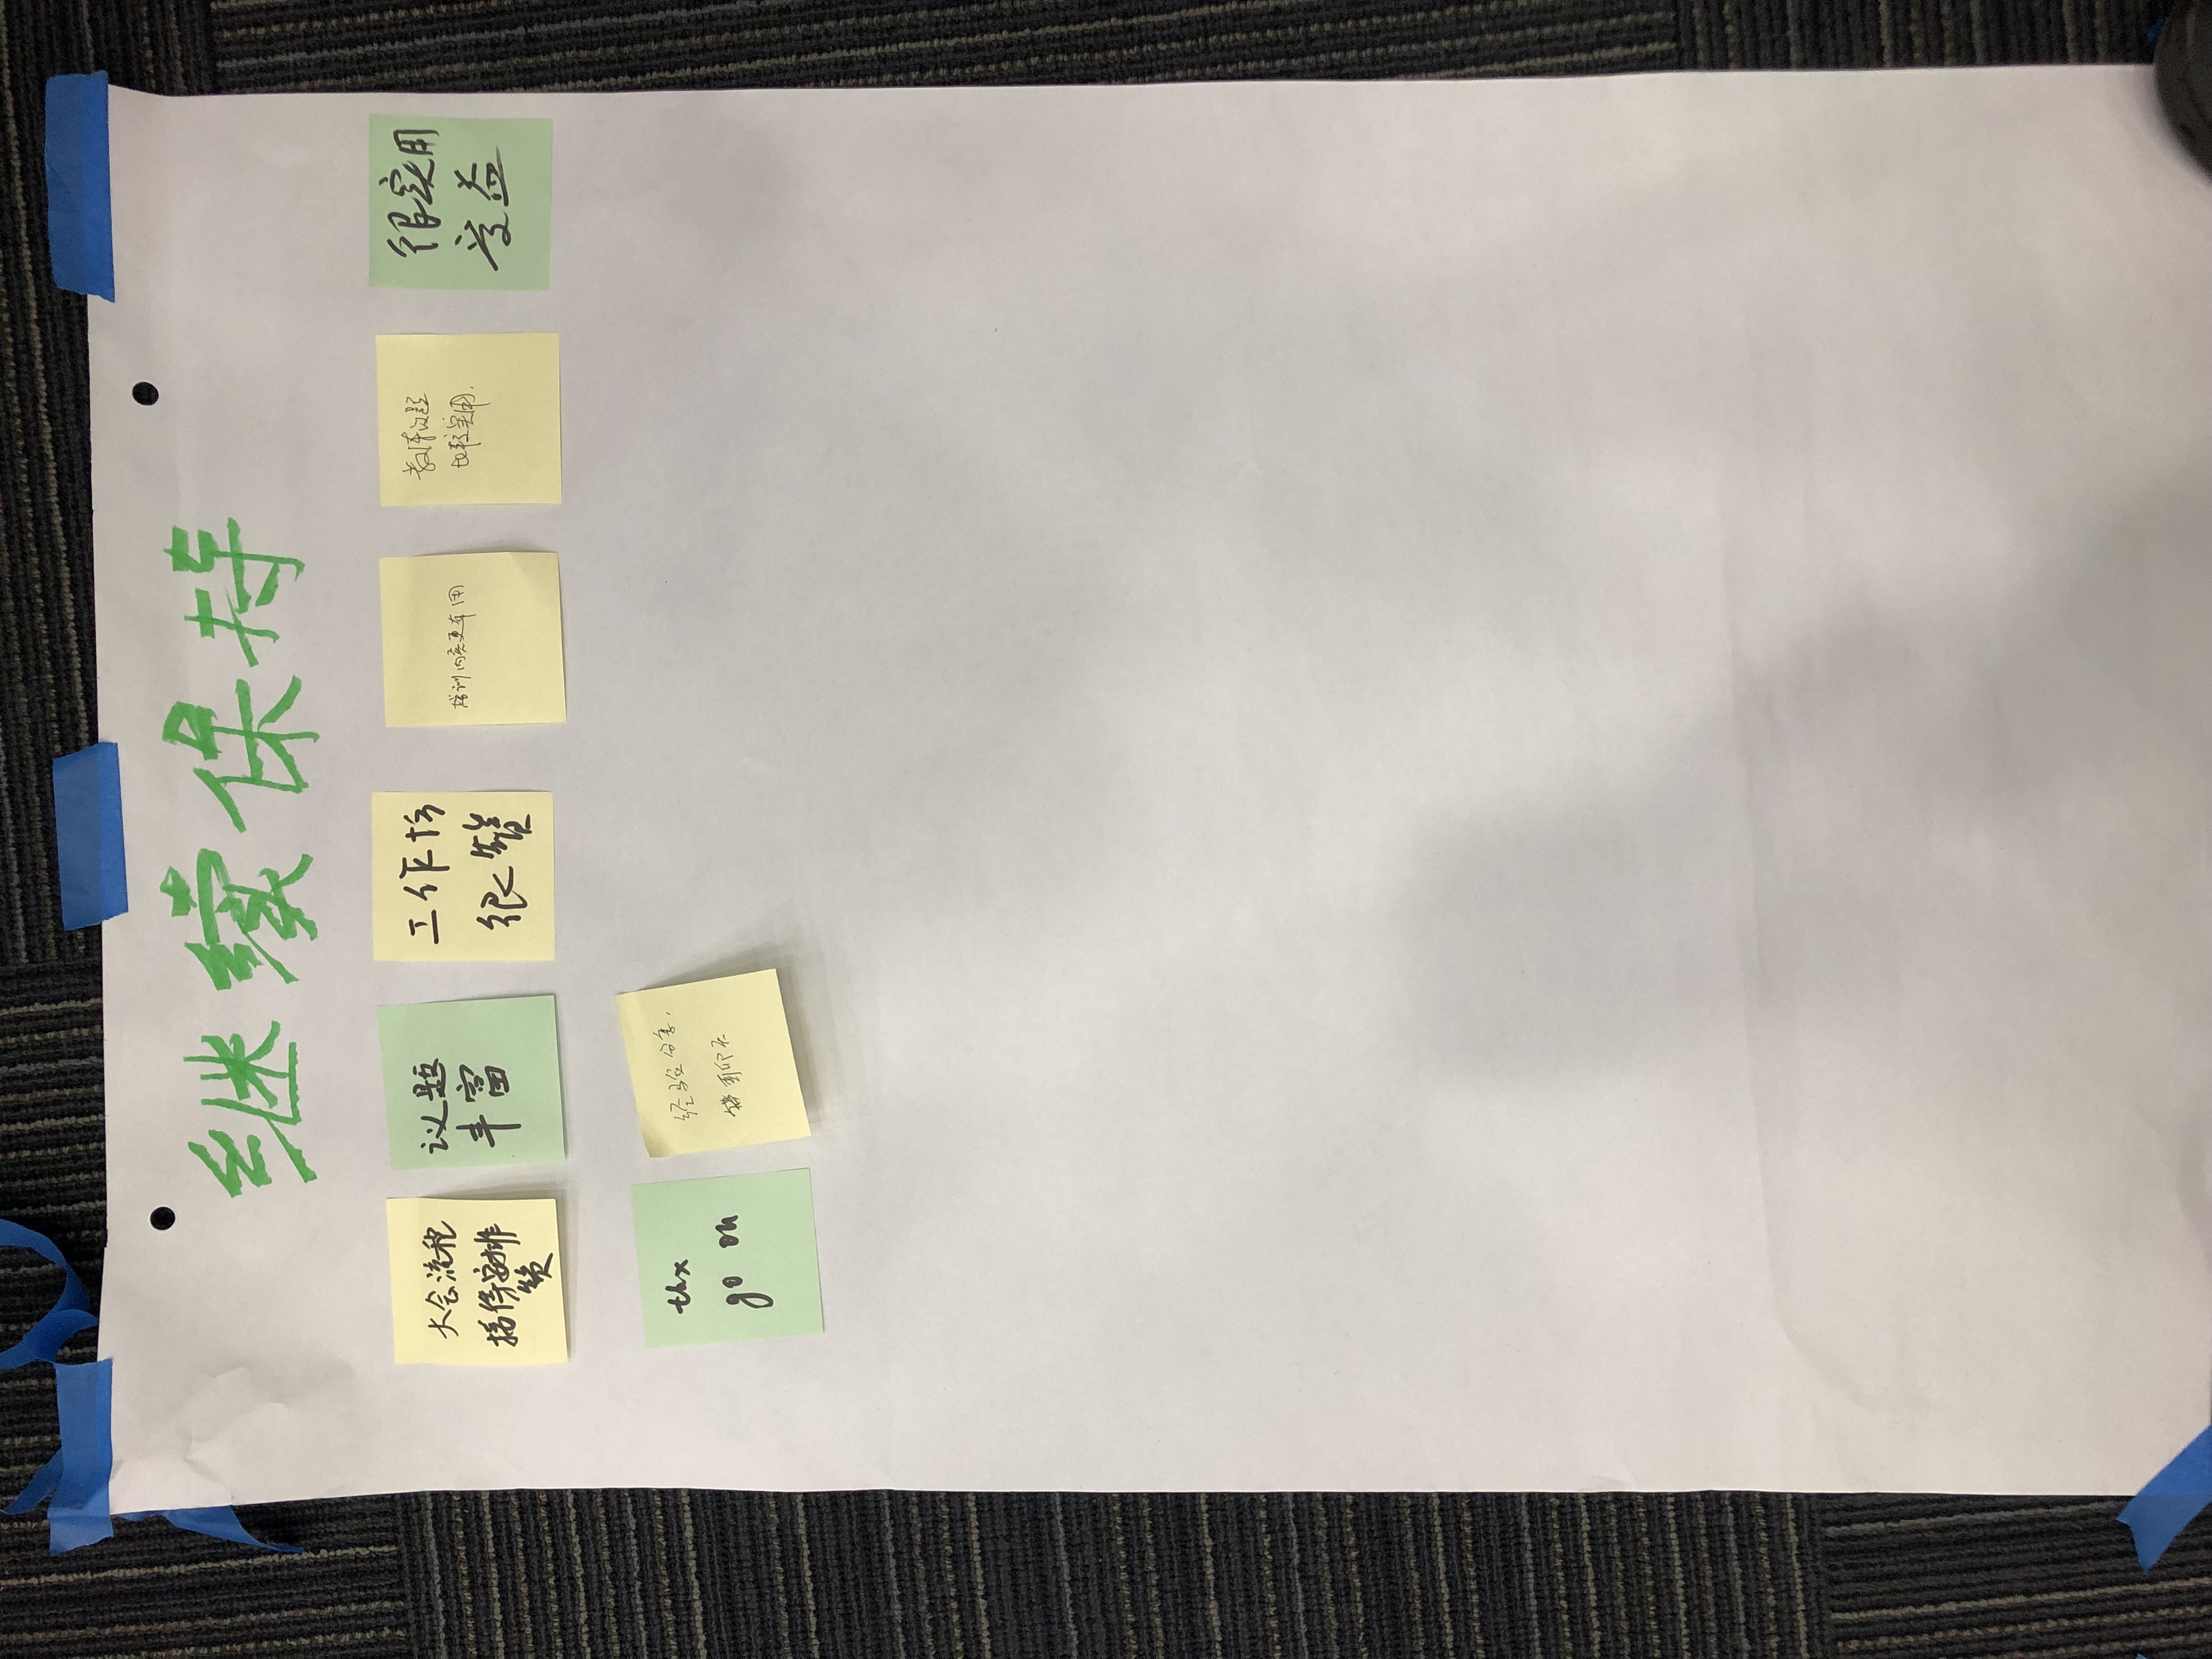 继续保持
大会流程
接待安排
赞
议题
丰富
工作坊
很赞
培训内容更有用
议题
比较实用.
很实用
受益
thx
go on
经验分享,
聊天